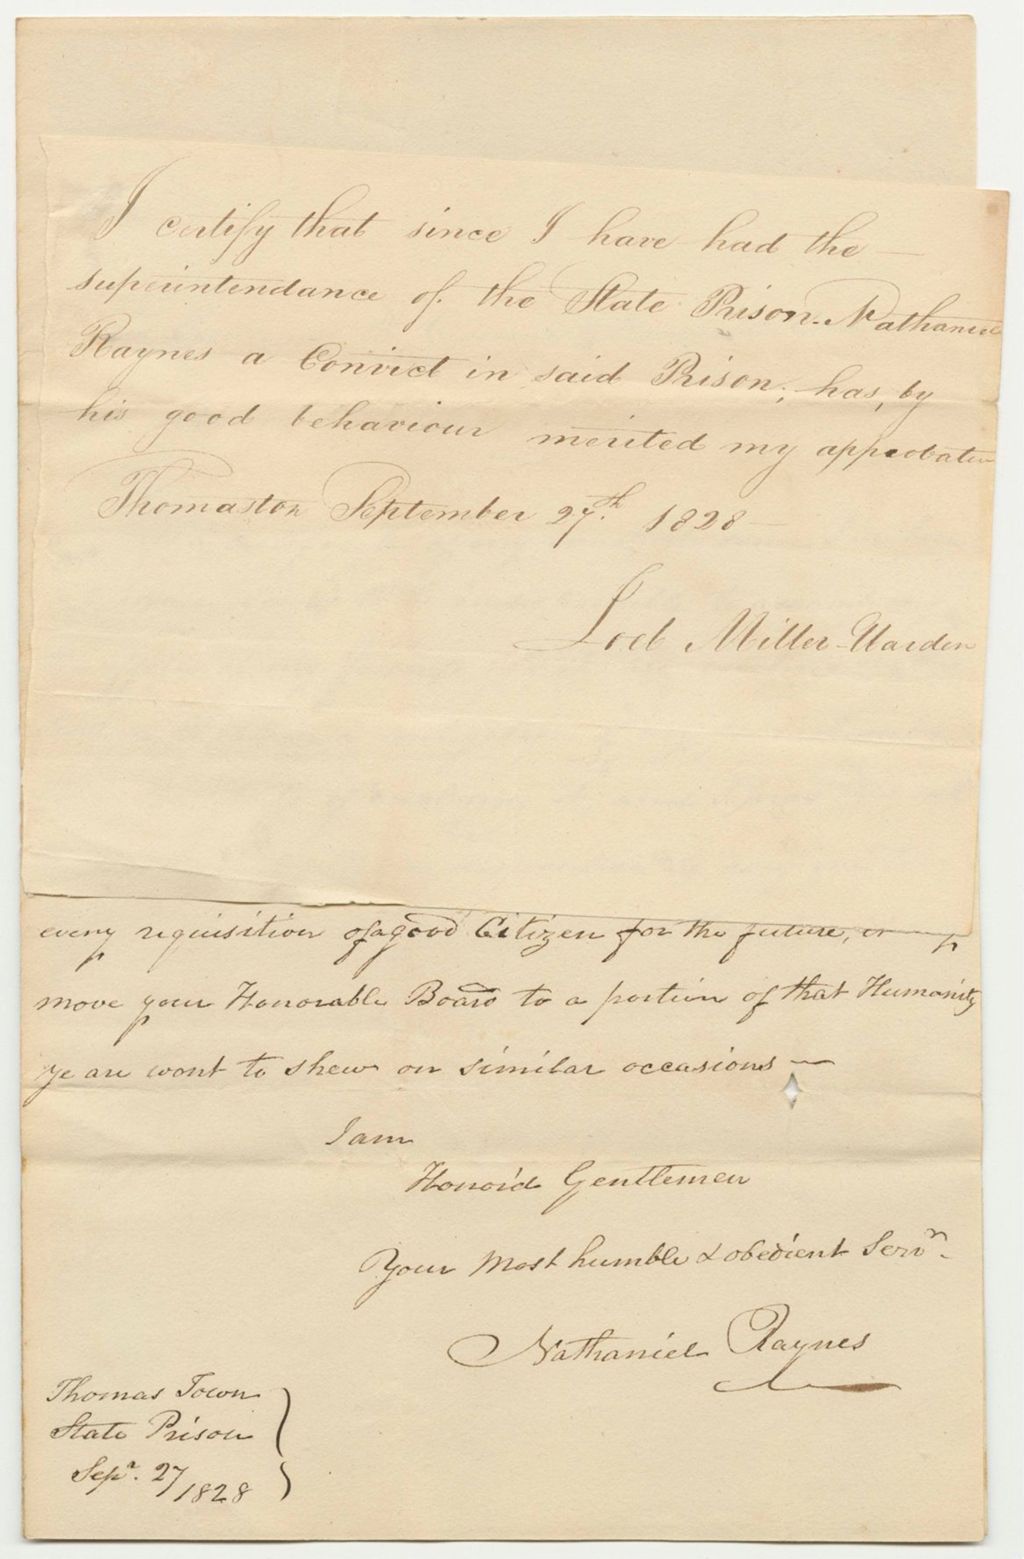 I certify that since I have had the —
superintendance of the State Prison. Nathaniel
Raynes a Convict in said Prison; has, by
his good behaviour merited my approbation
Thomaston September 27th. 1828 —
Miller Warden
every requisition of a good Citizen for the future, or
move your Honorable Board to a portion of that Humanity
ye are wont to shew on similar occasions —
I am
Honor'd Gentlemen
Your most humble & obedient Servr.
Nathaniel Raynes
Thomas Town
State Prison
Sepr. 27/1828